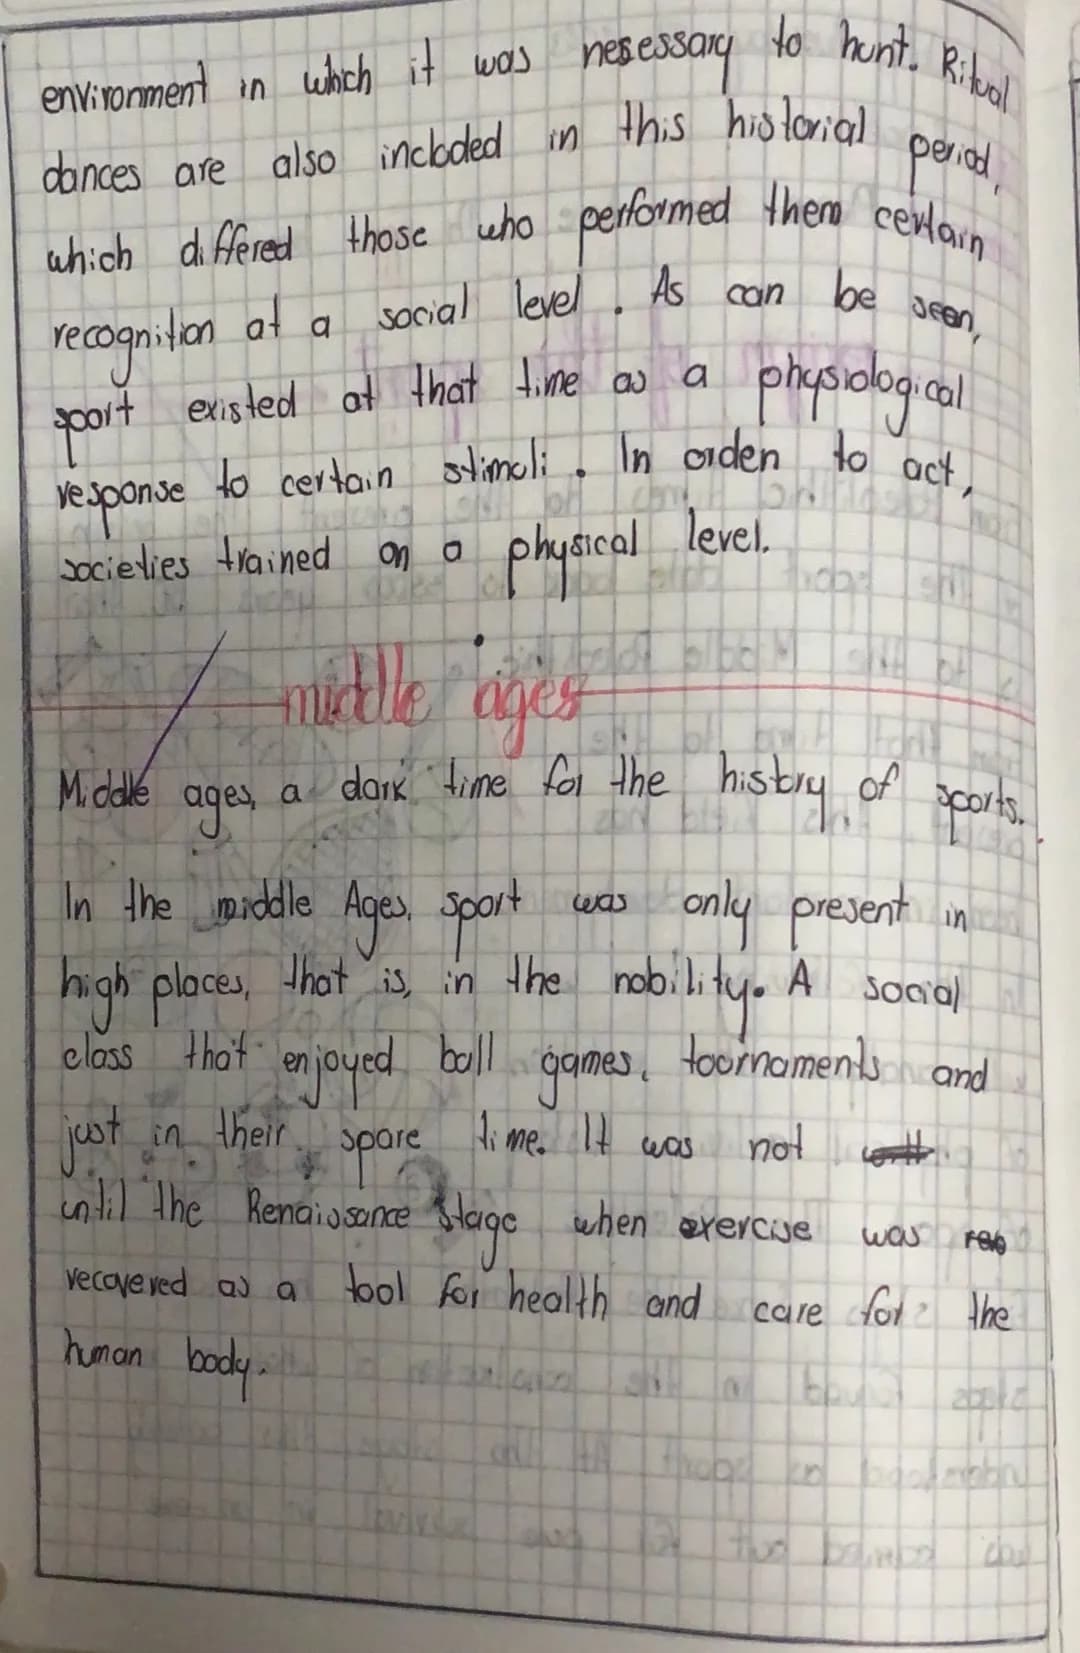 environment in which it was nesessary to hunt. Ritual
dances are also included in this historial period,
which differed those who performed them certain
recognition at a social level. As can be seen,
sport existed at that time as a physiological
response to certain stimuli. In orden to act,
societies trained on a physical level.
middle ages
Middle ages, a dark time for the history of sports.
In the middle Ages, sport was only present in
high places, that is, in the nobility. A social
class that enjoyed ball games, tournaments and
just in their spare time. It was not
until the Renaissance stage when exercise was
recovered as a tool for health and care for the
human body.